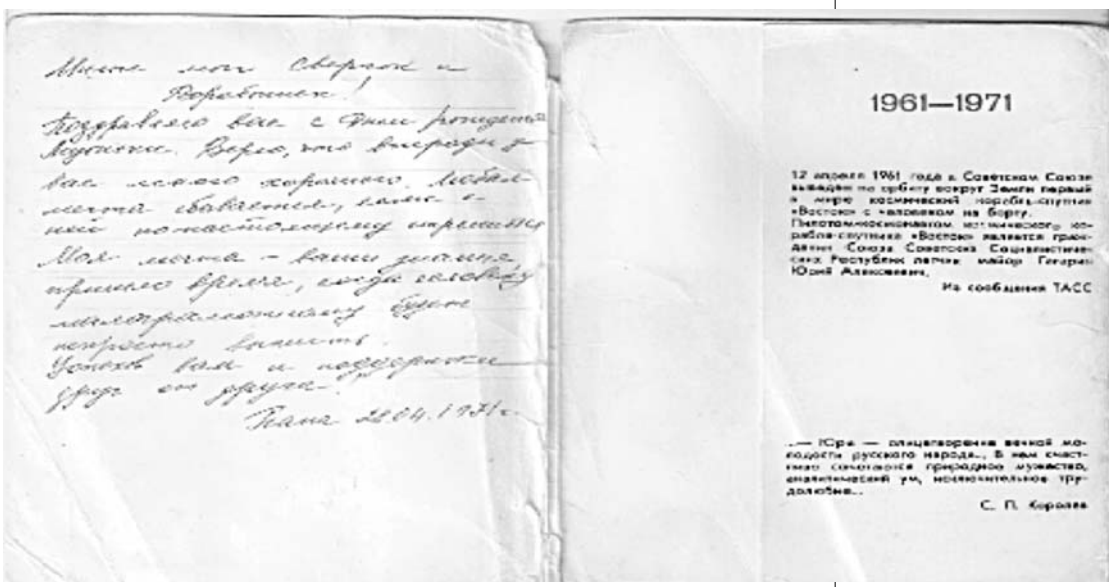 Милые мои Сверчок и
Воробышек!
Поздравляю вас с Днем рождения
Верю, что впереди у
вас много хорошего. Любая
мечта сбывается, если к
ней по-настоящему стремиться
Моя мечта – ваши знания
пришло время, когда человеку
малограмотному будет
непросто выжить.
Успехов вам и поддержки
друг от друга.
Папа 20.04.1971 г.
1961—1971
12 апреля 1961 года в Советском Союзе
выведен на орбиту вокруг Земли первый
в мире космический корабль-спутник
«Восток» с человеком на борту.
Пилотом-космонавтом космического ко-
рабля-спутника «Восток» является граж-
данин Союза Советских Социалистичес-
ких Республик летчик майор Гагарин
Юрий Алексеевич.
Из сообщения ТАСС
...— Юра — олицетворение вечной мо-
лодости русского народа... В нем счаст-
ливо сочетаются природное мужество,
аналитический ум, исключительное тру-
долюбие...
С. П. Королев